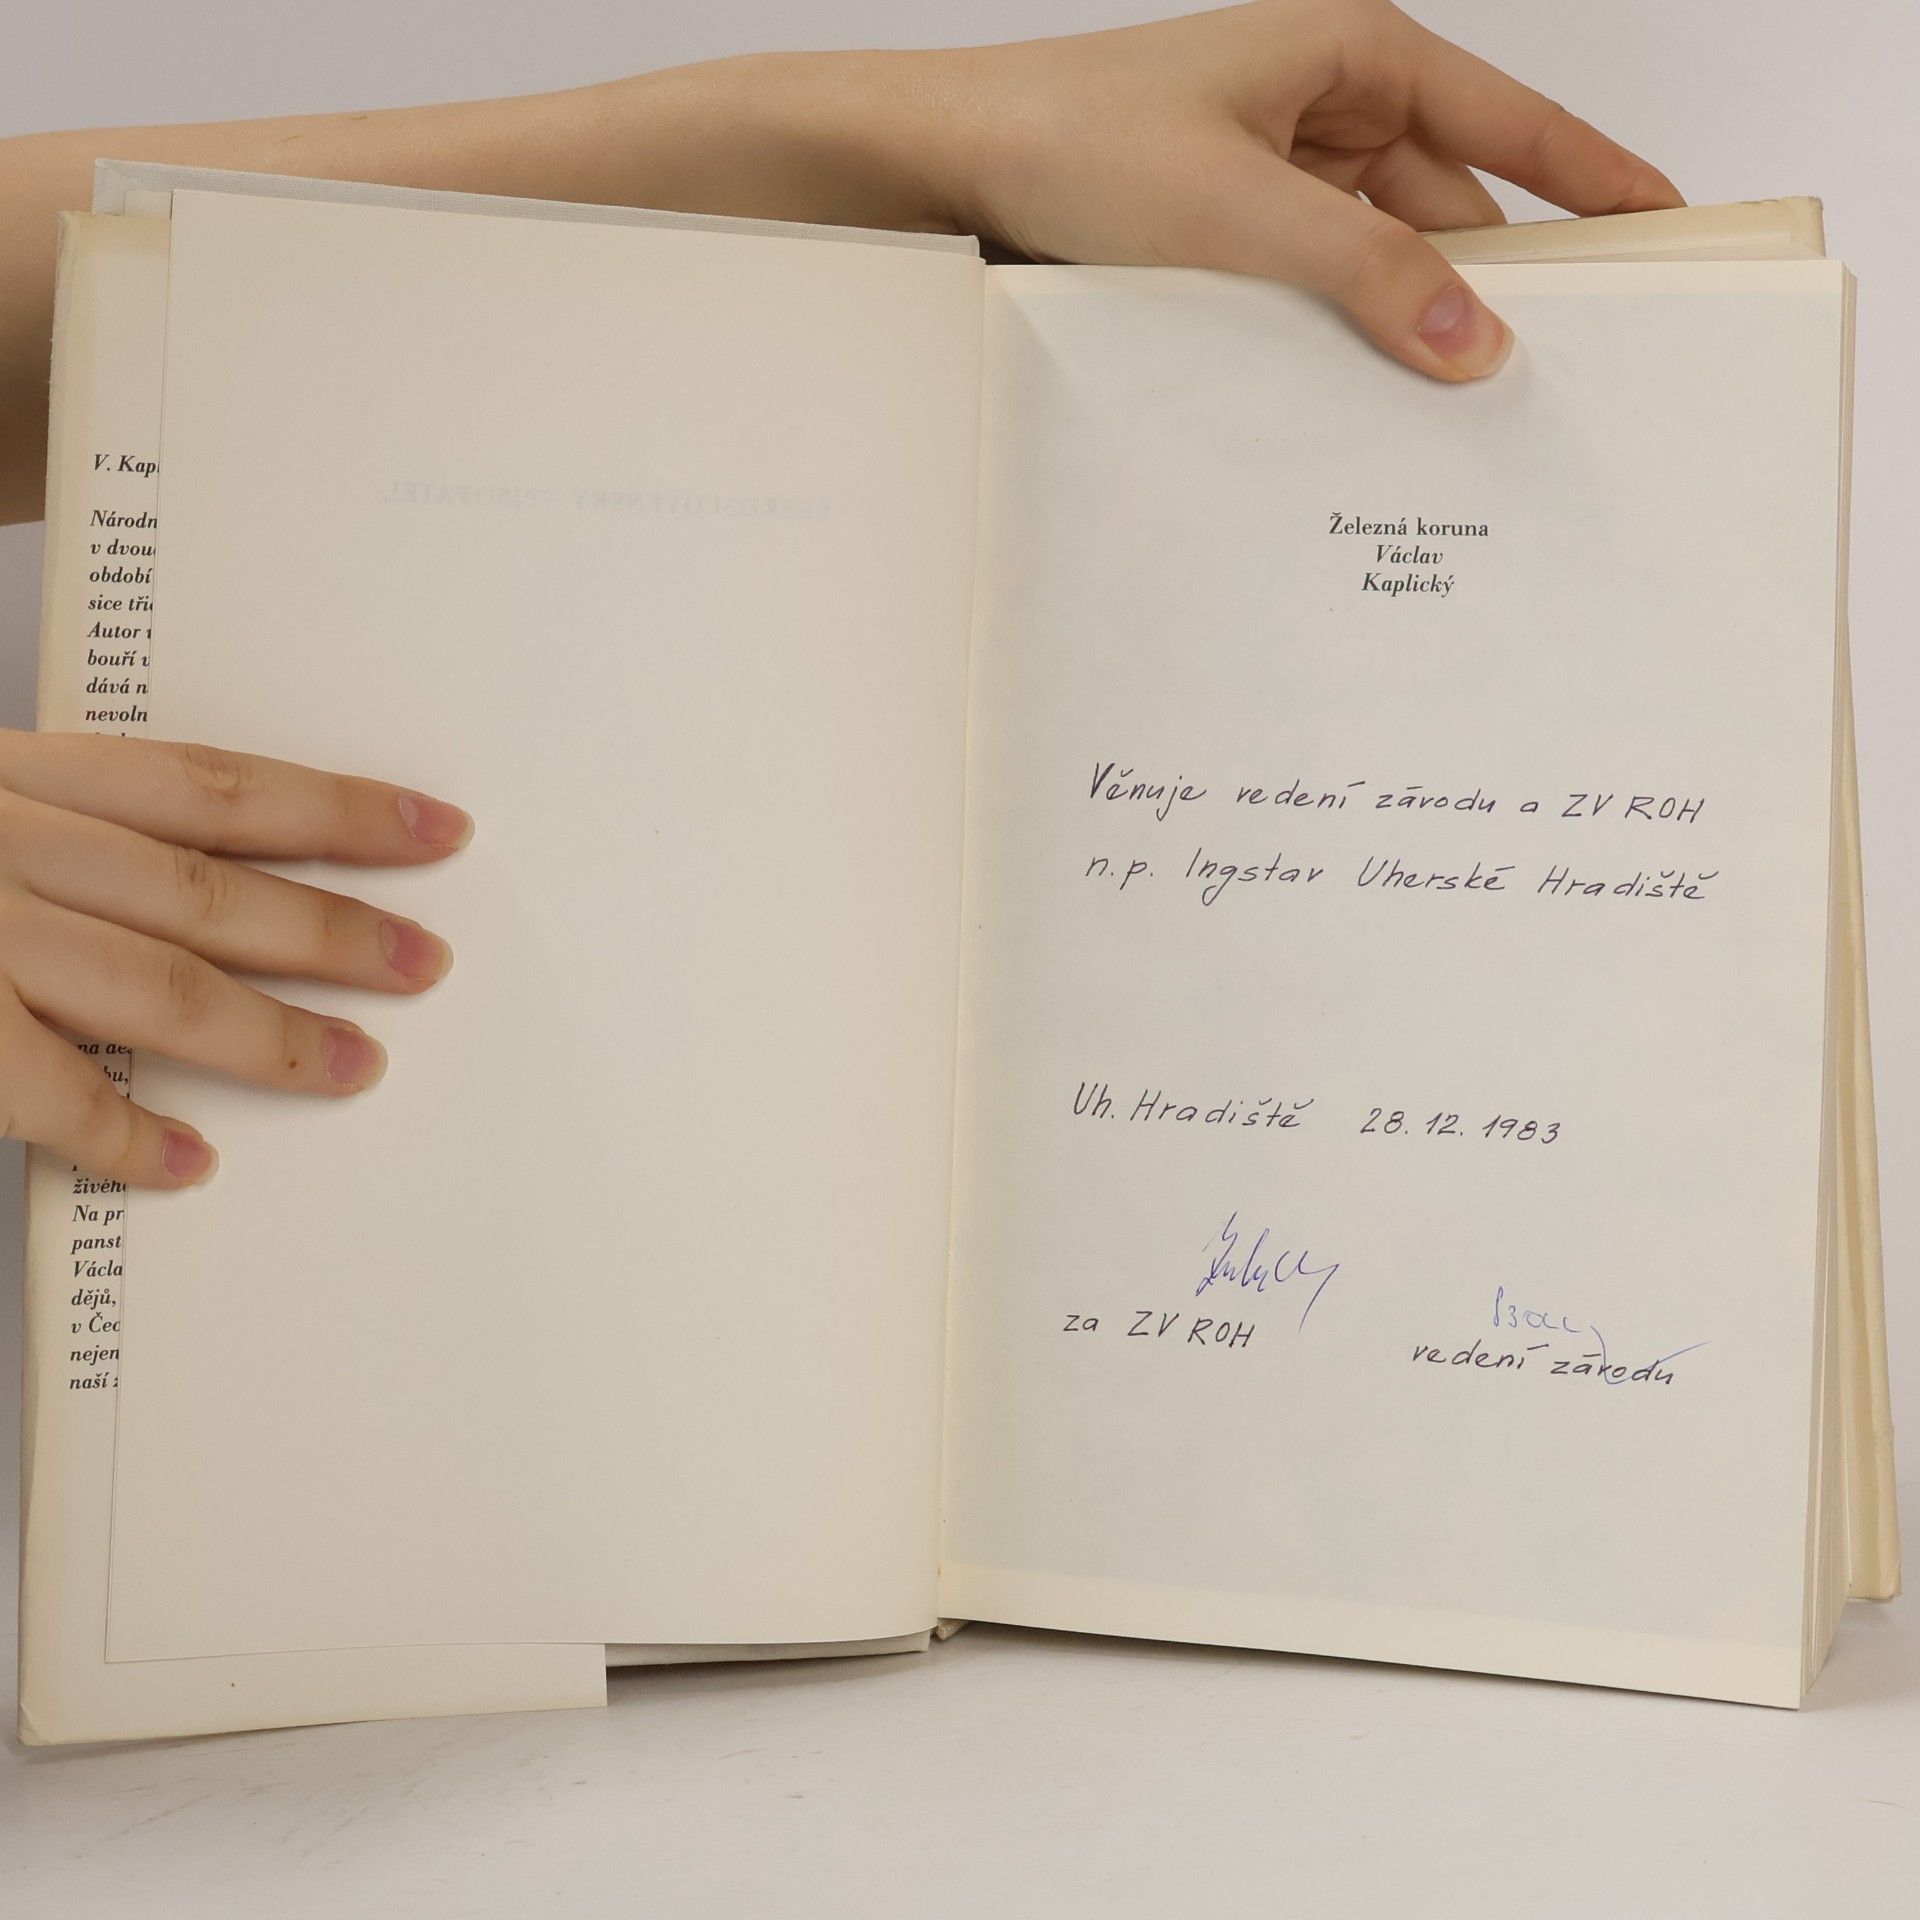 V. Kap
Národn
v dvou
období
sice tři
Autor
bouří v
dává n
nevoln
na de
bu,
živéh
Na pr
panst
Václa
dějů,
v Čec
nejen
naší
ČESKOSLOVENSKÝ SPISOVATEL
Železná koruna
Václav
Kaplický
Věnuje vedení závodu a ZV ROH
n.p. Ingstav Uherské Hradiště
Uh. Hradiště 28.12.1983
za ZV ROH
vedení závodu